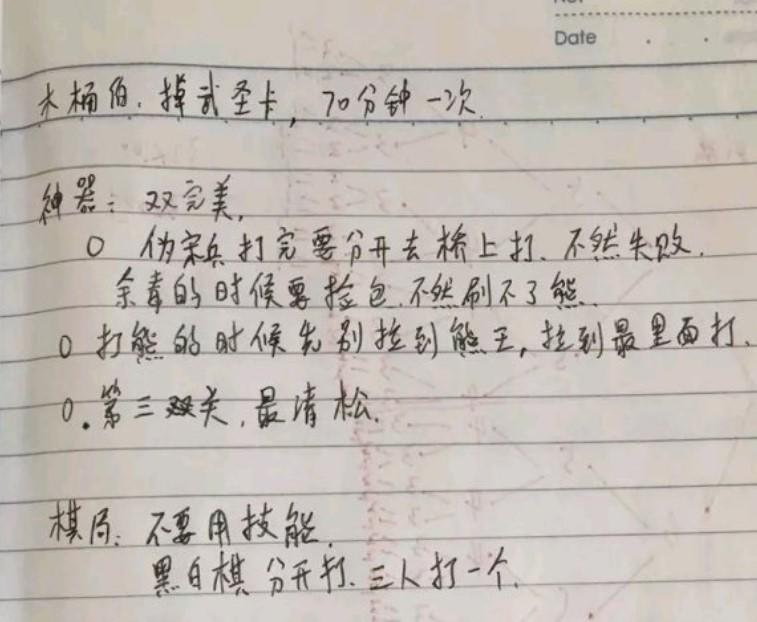 Date
木桶伯.掉武圣卡,70分钟一次.
神器:双完美.
O 伪宋兵打完要分开去桥上打.不然失败.
余毒的时候要捡包.不然刷不了熊.
O 打熊的时候先别拉到熊王,拉到最里面打.
O.第三关,最清松.
棋局:不要用技能.
黑白棋分开打.三人打一个.